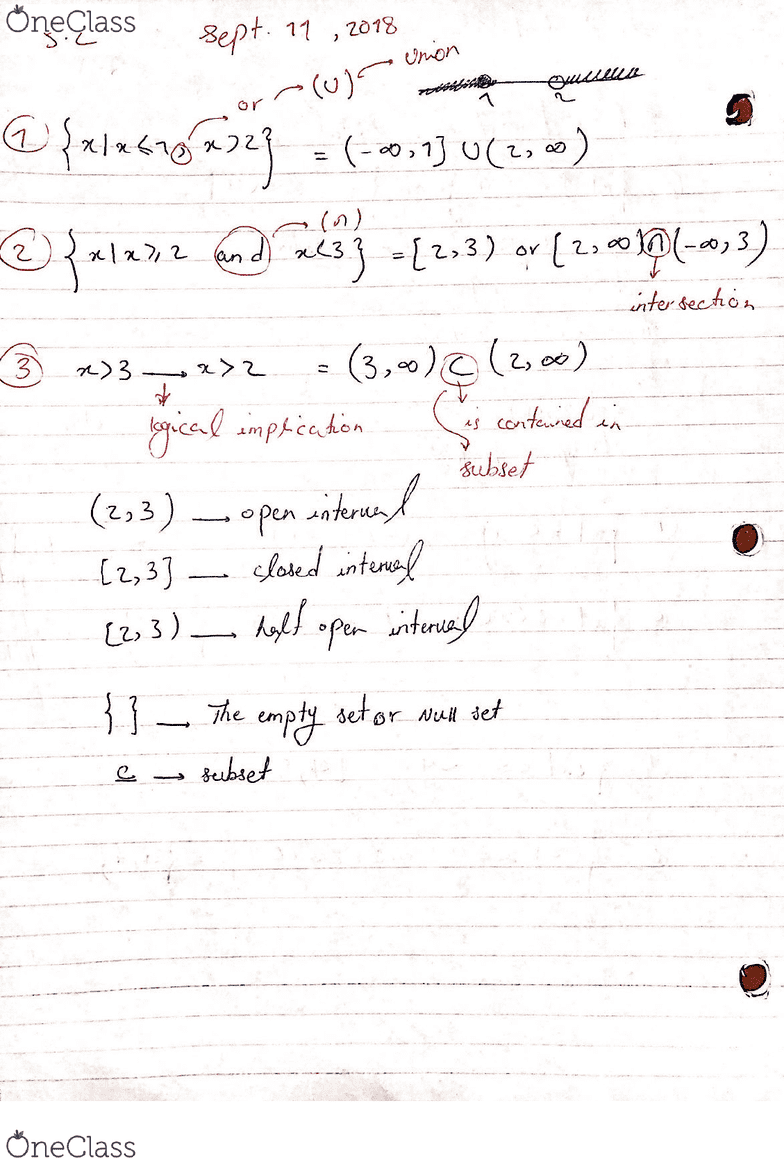 OneClass
Sept. 11, 2018
or → (∪) union
1 2
① {x|x≤1, x>2} = (-∞,1] ∪ (2,∞)
(∩)
② {x|x≥2 and x<3} = [2,3) or [2,∞) ∩ (-∞,3)
intersection
③ x>3 → x>2 = (3,∞) ⊂ (2,∞)
logical implication is contained in
subset
(2,3) → open interval
[2,3] — closed interval
[2,3) — half open interval
{ } → The empty set or Null set
⊆ → subset
OneClass